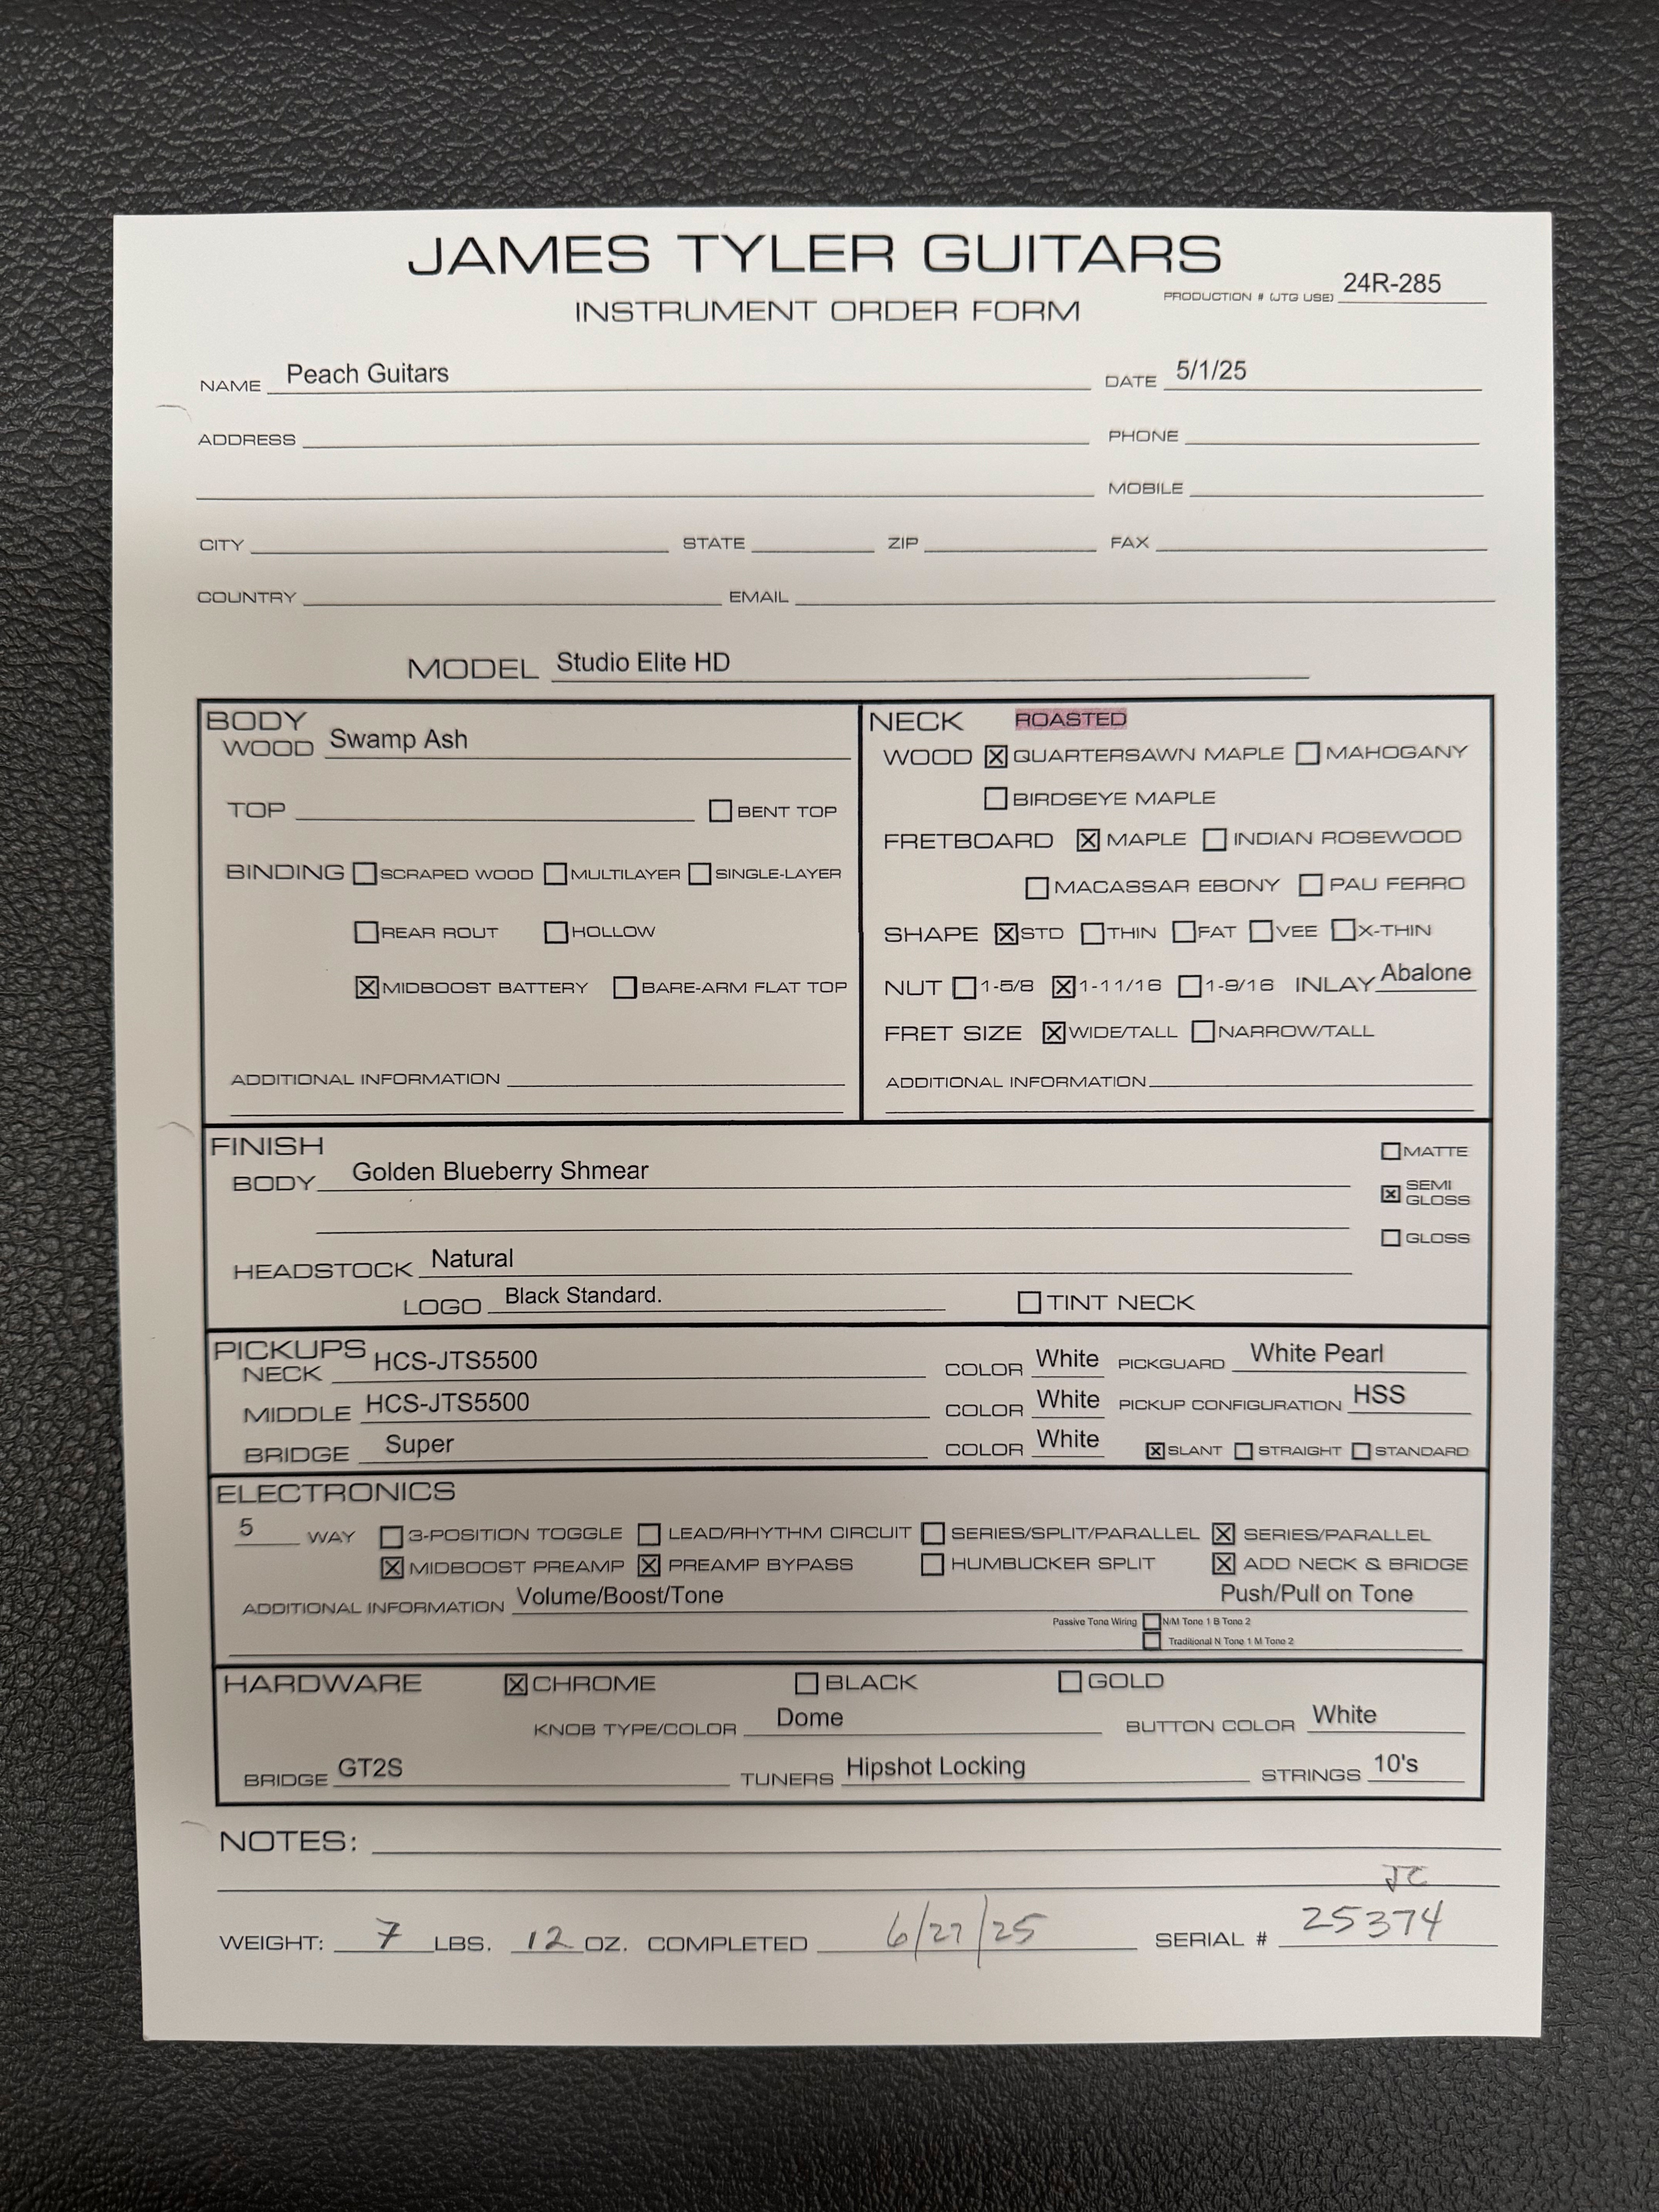 JAMES TYLER GUITARS
INSTRUMENT ORDER FORM
PRODUCTION # (JTG USE) 24R-285
NAME Peach Guitars DATE 5/1/25
ADDRESS PHONE
MOBILE
CITY STATE ZIP FAX
COUNTRY EMAIL
MODEL Studio Elite HD
BODY
WOOD Swamp Ash
TOP ☐ BENT TOP
BINDING ☐ SCRAPED WOOD ☐ MULTILAYER ☐ SINGLE-LAYER
☐ REAR ROUT ☐ HOLLOW
☒ MIDBOOST BATTERY ☐ BARE-ARM FLAT TOP
ADDITIONAL INFORMATION
NECK ROASTED
WOOD ☒ QUARTERSAWN MAPLE ☐ MAHOGANY
☐ BIRDSEYE MAPLE
FRETBOARD ☒ MAPLE ☐ INDIAN ROSEWOOD
☐ MACASSAR EBONY ☐ PAU FERRO
SHAPE ☒ STD ☐ THIN ☐ FAT ☐ VEE ☐ X-THIN
NUT ☐ 1-5/8 ☒ 1-11/16 ☐ 1-9/16 INLAY Abalone
FRET SIZE ☒ WIDE/TALL ☐ NARROW/TALL
ADDITIONAL INFORMATION
FINISH
BODY Golden Blueberry Shmear
☐ MATTE
☒ SEMI GLOSS
☐ GLOSS
HEADSTOCK Natural
LOGO Black Standard. ☐ TINT NECK
PICKUPS
NECK HCS-JTS5500 COLOR White PICKGUARD White Pearl
MIDDLE HCS-JTS5500 COLOR White PICKUP CONFIGURATION HSS
BRIDGE Super COLOR White ☒ SLANT ☐ STRAIGHT ☐ STANDARD
ELECTRONICS
5 WAY ☐ 3-POSITION TOGGLE ☐ LEAD/RHYTHM CIRCUIT ☐ SERIES/SPLIT/PARALLEL ☒ SERIES/PARALLEL
☒ MIDBOOST PREAMP ☒ PREAMP BYPASS ☐ HUMBUCKER SPLIT ☒ ADD NECK & BRIDGE
ADDITIONAL INFORMATION Volume/Boost/Tone Push/Pull on Tone
Passive Tone Wiring ☐ N/M Tone 1 B Tone 2
☐ Traditional N Tone 1 M Tone 2
HARDWARE ☒ CHROME ☐ BLACK ☐ GOLD
KNOB TYPE/COLOR Dome BUTTON COLOR White
BRIDGE GT2S TUNERS Hipshot Locking STRINGS 10's
NOTES:
JC
WEIGHT: 7 LBS. 12 OZ. COMPLETED 6/27/25 SERIAL # 25374